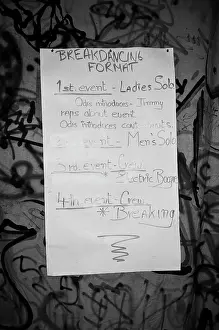 BREAKDANCING
FORMAT
1st. event - Ladies Solo
Odis introduces - Jimmy
raps about event
Odis introduces
event - Men's Solo
event - Crew
Electric Boogie
4th event - Crew
* BREAKING